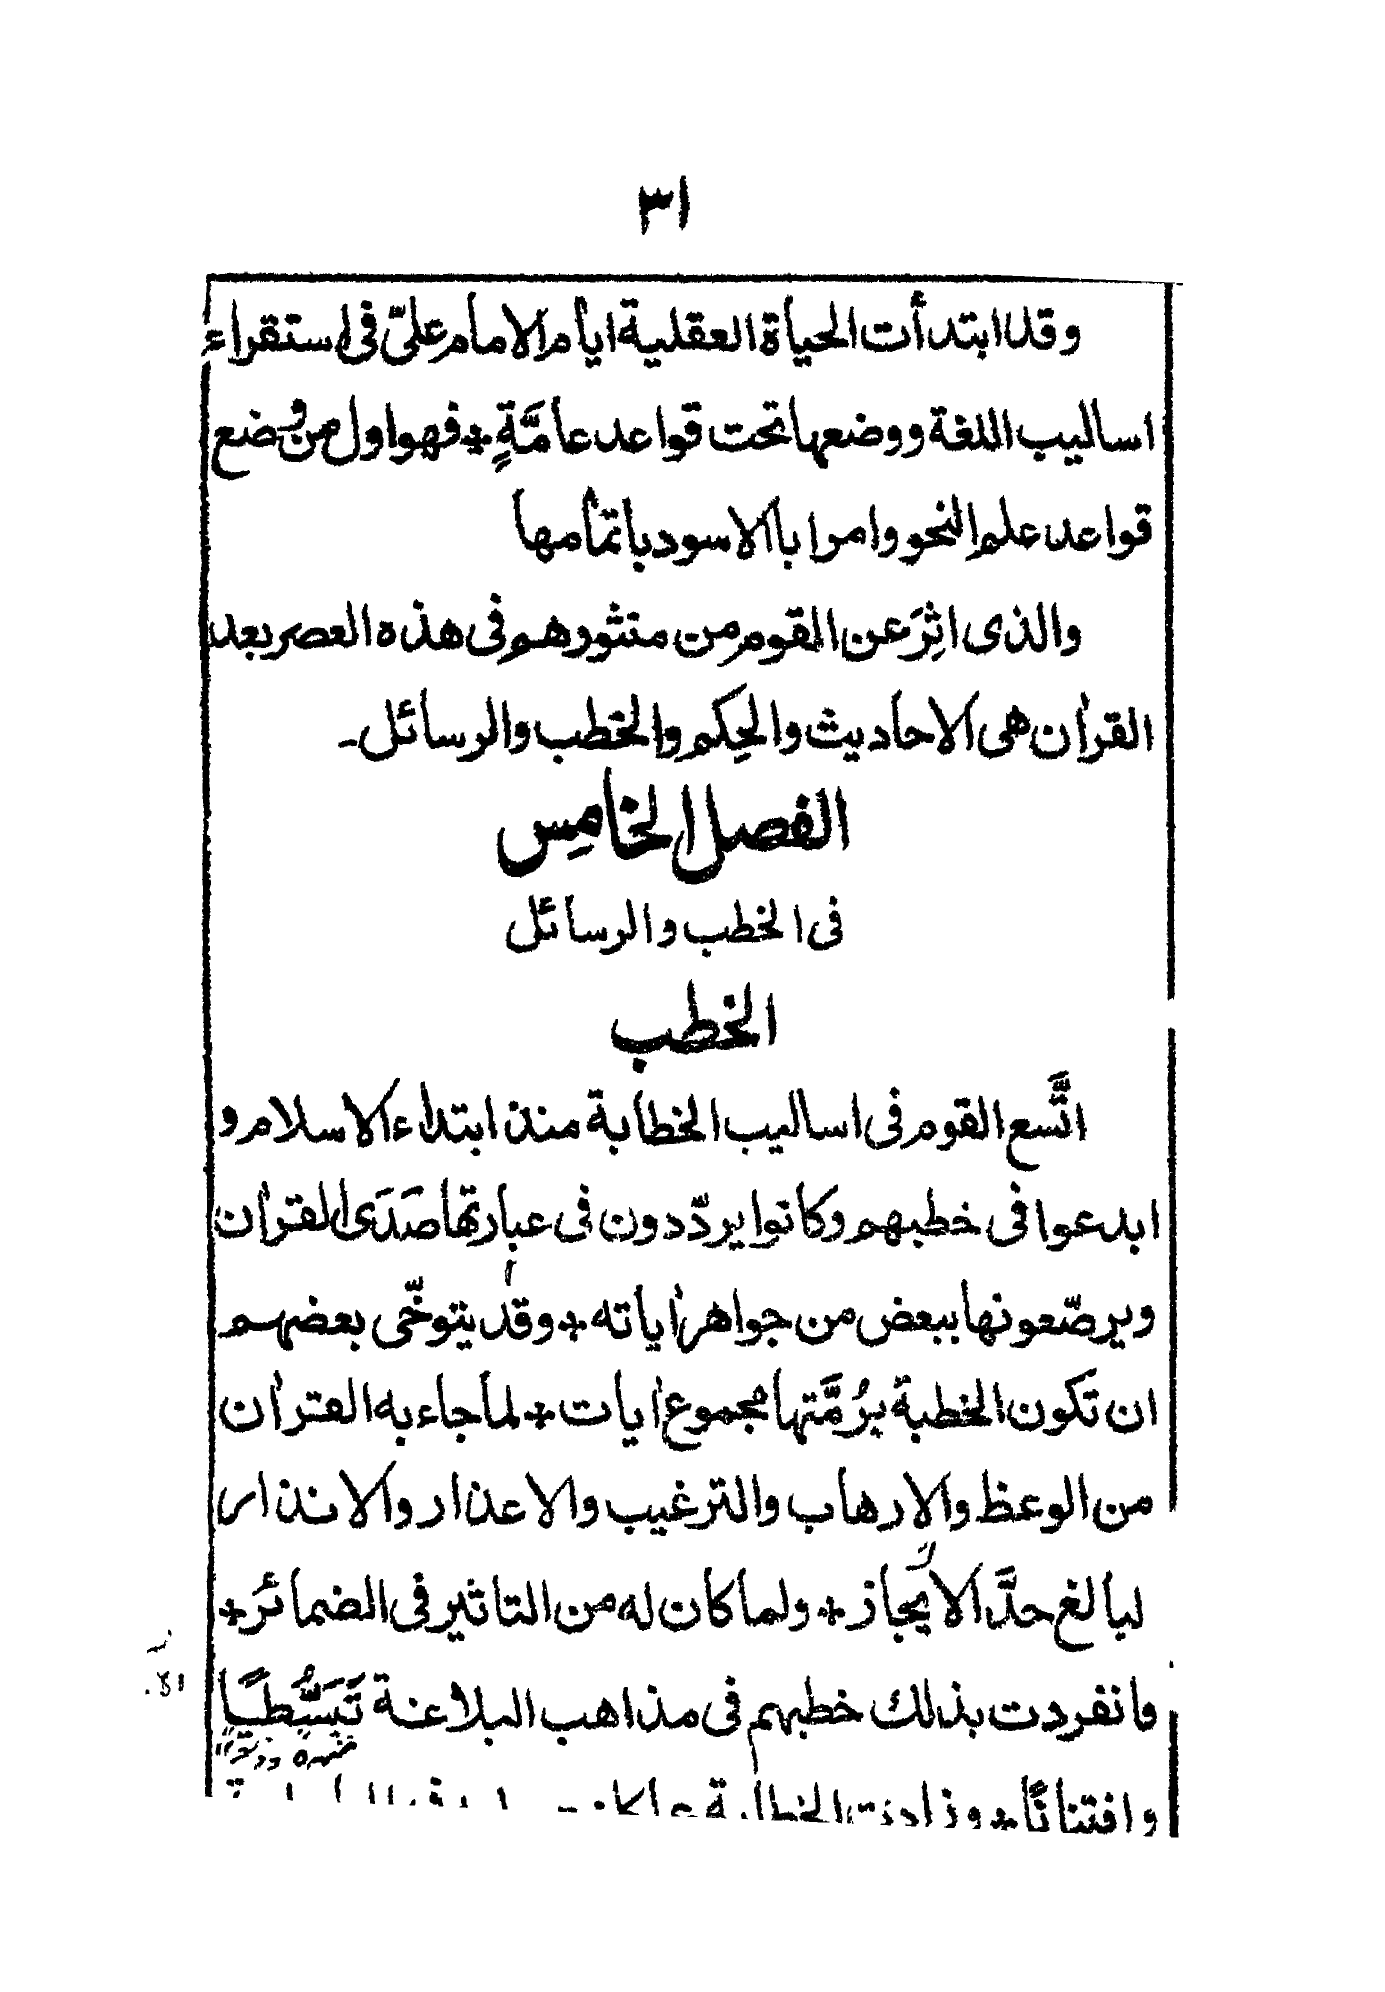 ٣١
وقد ابتدأت الحياة العقلية ايام الامام عليّ فى استقراء
اساليب اللغة ووضعها تحت قواعد عامَّةٍ * فهو اول من وضع
قواعد علم النحو وامر ابا الاسود باتمامها
والذى اثِرَ عن القوم من منثورهم فى هذه العصر بعد
القراٰن هى الاحاديث والحِكم والخطب والرسائل ـ
الفصل الخامِس
فى الخطب والرسائل
الخطب
اتَّسع القوم فى اساليب الخطابة منذ ابتداء الاسلام و
ابدعوا فى خطبهم وكانوا يردّدون فى عبارتها صَدَى القراٰن
ويرصّعونها ببعض من جواهر اٰياته * وقد يتوخّى بعضهم
ان تكون الخطبة برُمَّتها مجموع اٰيات * لما جاء به القراٰن
من الوعظ والارهاب والترغيب والاعذار والانذار
لبالغ حدَّ الايجاز * ولما كان له من التاثير فى الضمائر *
وانفردت بذلك خطبهم فى مذاهب البلاغة تَبَسُّطًا
وافتنانًا * وزادت الخطابة